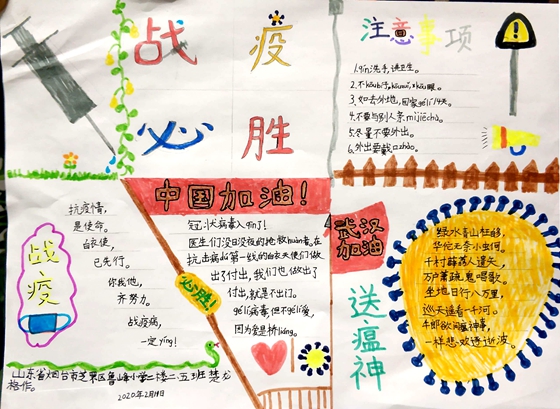 战疫
必胜
注意事项
1.qín洗手,讲卫生。
3.如去外地,回家gélí14天。
4.不要与别人亲mìjiēchù。
5.尽量不要外出。
6.外出要戴口zhào。
抗疫情,
是使命。
白衣使,
已先行。
你我他,
齐努力。
战疫病,
一定yíng!
战疫
中国加油!
冠状病毒入qīn了!
医生们没日没夜的抢救huàn者,在
抗击病毒第一线的白衣天使们做
出了付出,我们也做出了
付出,就是不出门。
gélí病毒但不gélí爱,
因为爱是桥liáng。
必胜!
武汉
加油
送瘟神
绿水青山枉自多,
华佗无奈小虫何。
千村薜荔人遗矢,
万户萧疏鬼唱歌。
坐地日行八万里,
巡天遥看一千河。
牛郎欲问瘟神事,
一样悲欢逐逝波。
山东省烟台市芝罘区鲁峰小学二楼二.五班楚
格作。
2020年2月19日